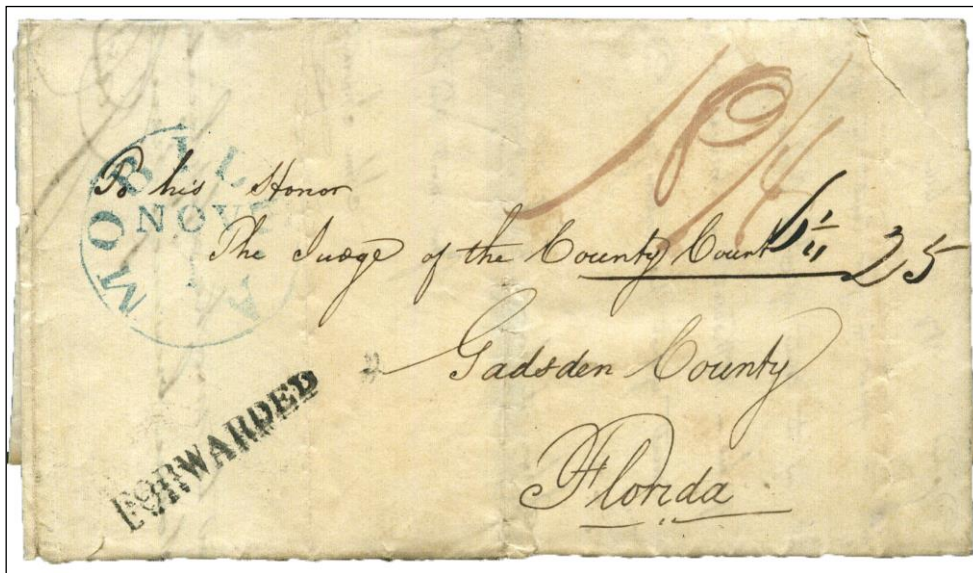 MOBILE ALA
NOV
To his Honor
The Judge of the County Court
25
Gadsden County
Florida
FORWARDED